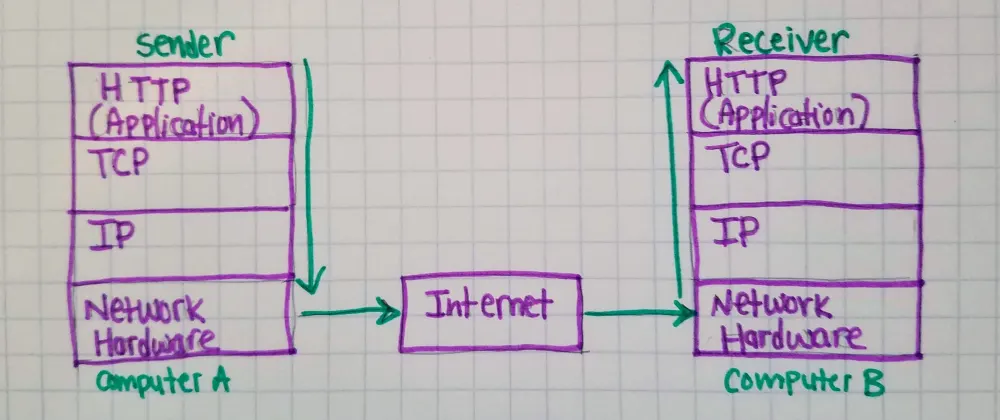 Sender
HTTP
(Application)
TCP
IP
Network
Hardware
Computer A
Internet
Receiver
HTTP
(Application)
TCP
IP
Network
Hardware
Computer B